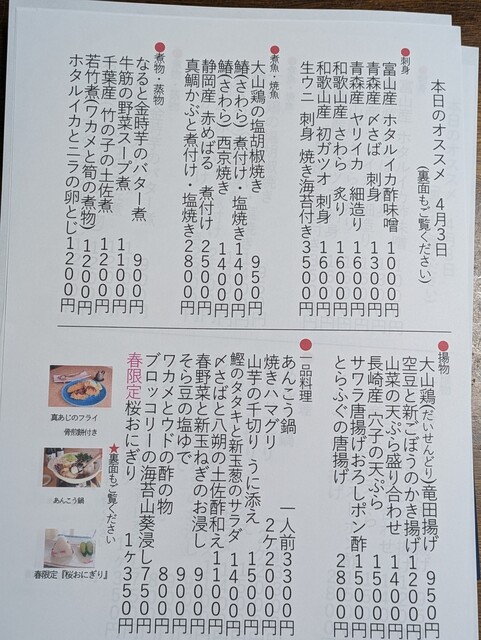 本日のオススメ 4月3日
(裏面もご覧ください)
●刺身
富山産 ホタルイカ酢味噌 1000円
青森産 〆さば 刺身 1300円
青森産 ヤリイカ 細造り 1600円
和歌山産 さわら 炙り 1600円
和歌山産 初ガツオ 刺身 1600円
生ウニ 刺身 焼き海苔付き 3500円
●煮魚・焼魚
大山鶏の塩胡椒焼き 950円
鰆(さわら) 煮付け・塩焼き 1400円
鰆(さわら) 西京焼き 1400円
静岡産 赤めばる 煮付け 2500円
真鯛かぶと煮付け・塩焼き 2800円
●煮物・蒸物
なると金時芋のバター煮 900円
牛筋の野菜スープ煮 1100円
千葉産 竹の子の土佐煮 1200円
若竹煮(ワカメと筍の煮物) 1200円
ホタルイカとニラの卵とじ 1200円
●揚物
大山鶏(だいせんどり)竜田揚げ 950円
空豆と新ごぼうのかき揚げ 1200円
山菜の天ぷら盛り合わせ 1400円
長崎産 穴子の天ぷら 1500円
サワラ唐揚げおろしポン酢 1500円
とらふぐの唐揚げ 2800円
●一品料理
あんこう鍋 一人前3300円
焼きハマグリ 2ケ2000円
山芋の千切り うに添え 1500円
鰹のタタキと新玉葱のサラダ 1400円
〆さばと八朔の土佐酢和え 1100円
春野菜と新玉ねぎのお浸し 900円
そら豆の塩ゆで 900円
ワカメとウドの酢の物 800円
ブロッコリーの海苔山葵浸し 750円
春限定桜おにぎり 1ヶ350円
★裏面もご覧ください
真あじのフライ
骨煎餅付き
あんこう鍋
春限定『桜おにぎり』